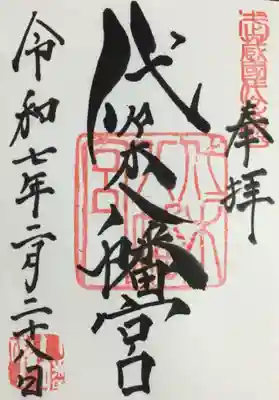 武蔵國
奉拝
代々木八幡宮
令和七年二月二十八日